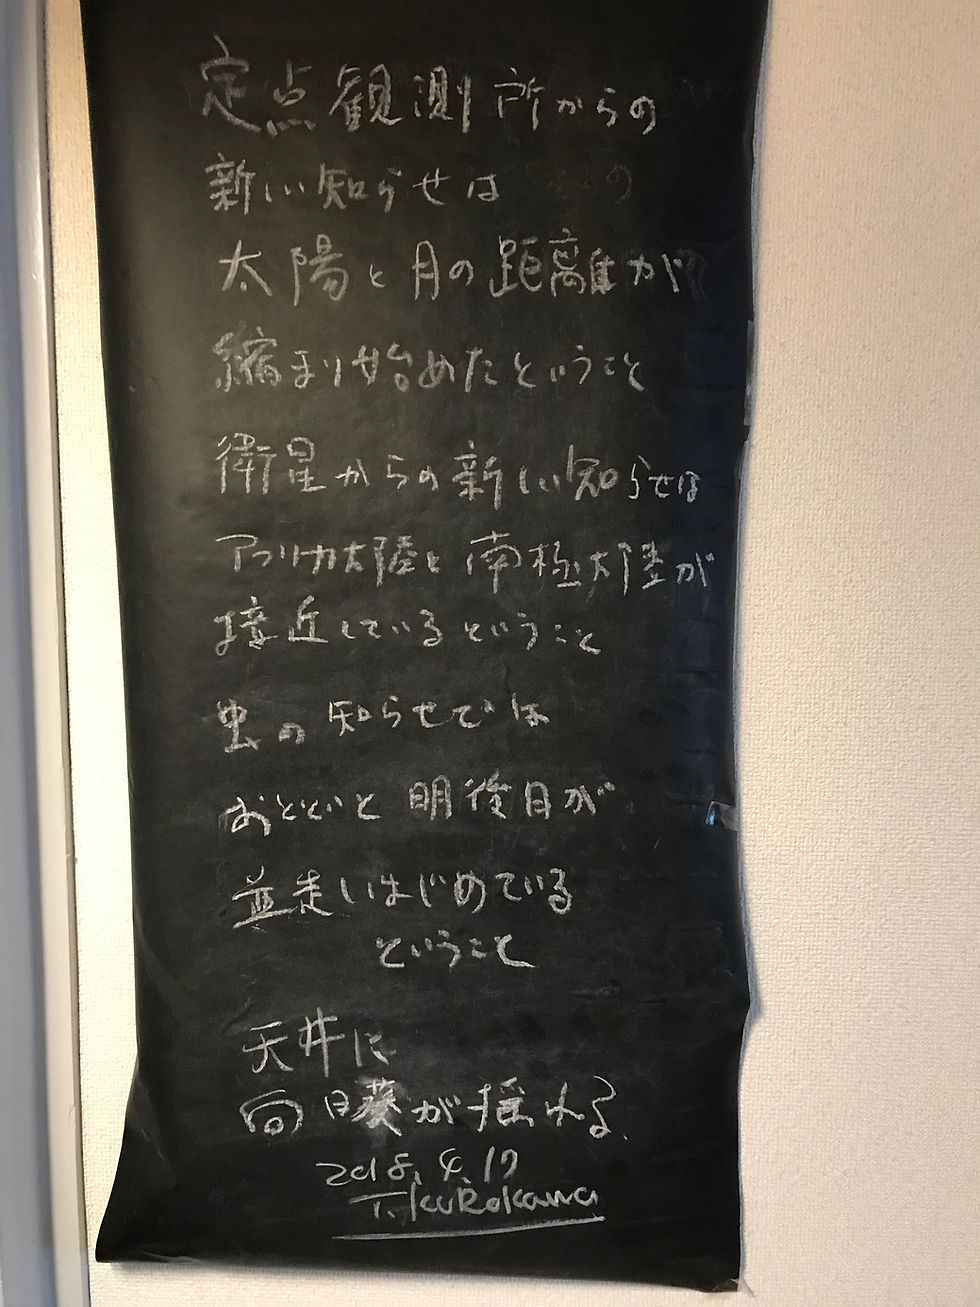 定点観測所からの
新しい知らせは
太陽と月の距離が
縮まり始めたということ
衛星からの新しい知らせは
アフリカ大陸と南極大陸が
接近しているということ
虫の知らせでは
おとといと明後日が
並走しはじめている
ということ
天井に
向日葵が揺れる
2018.4.17
T.kuRokawa